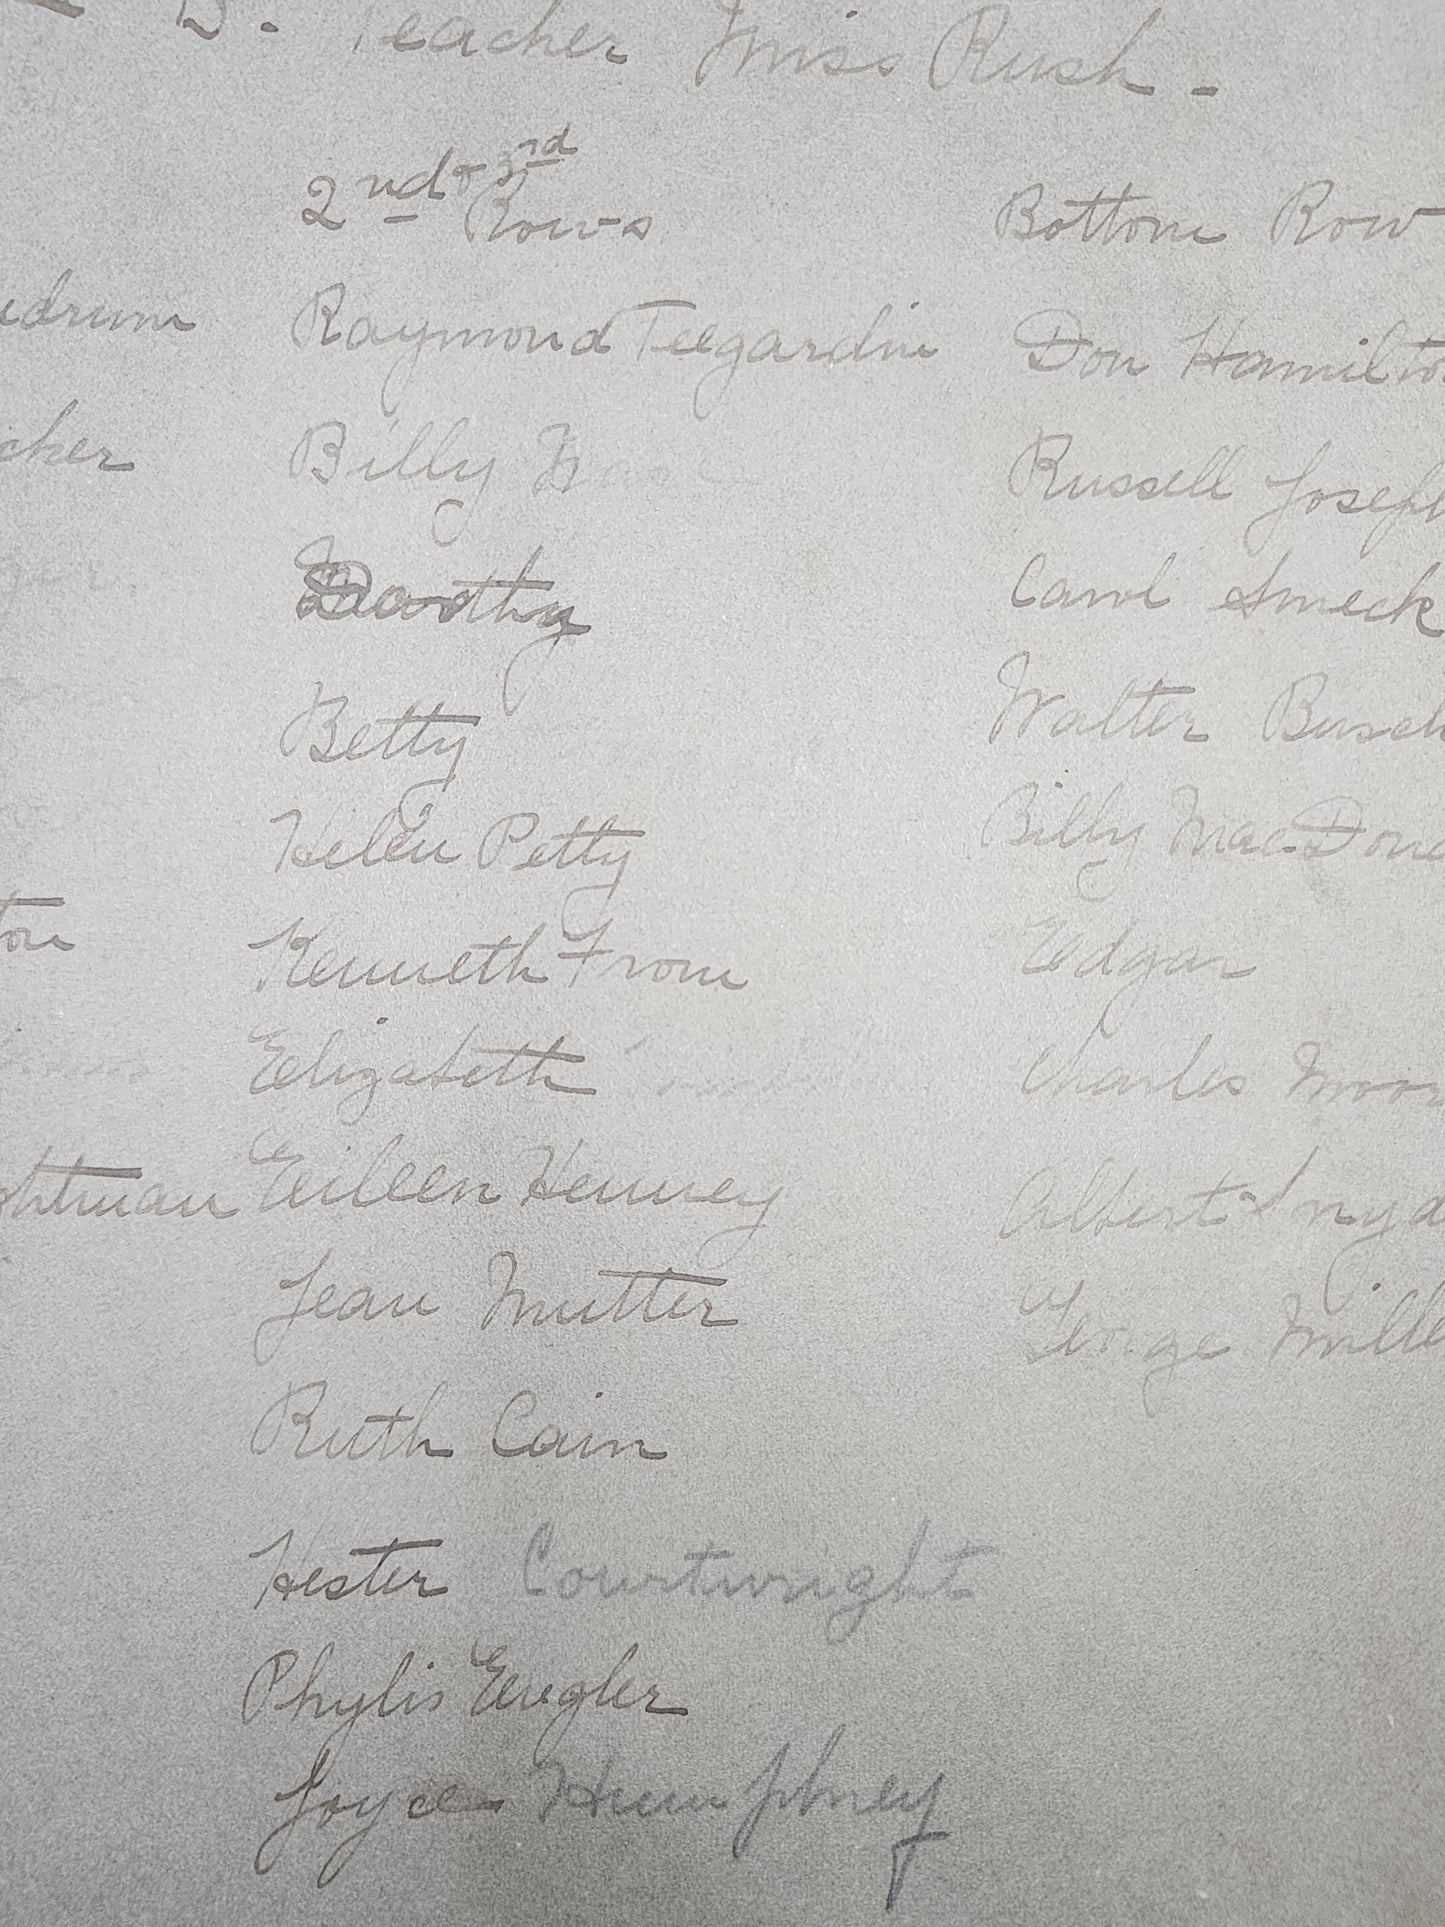 D. Teacher Miss Rush -
2nd & 3rd
Rows
Raymond Teegardin
Billy
Dorothy
Betty
Helen Petty
Kenneth From
Elizabeth
Eileen Henney
Jean Mutter
Ruth Cain
Hester Courtwright
Phylis Engler
Joyce Humphrey
Bottom Row
Don Hamilto
Russell Joseph
Carol Smeck
Walter Busch
Billy MacDona
Edgar
Charles Moor
Albert Snyd
George Mille